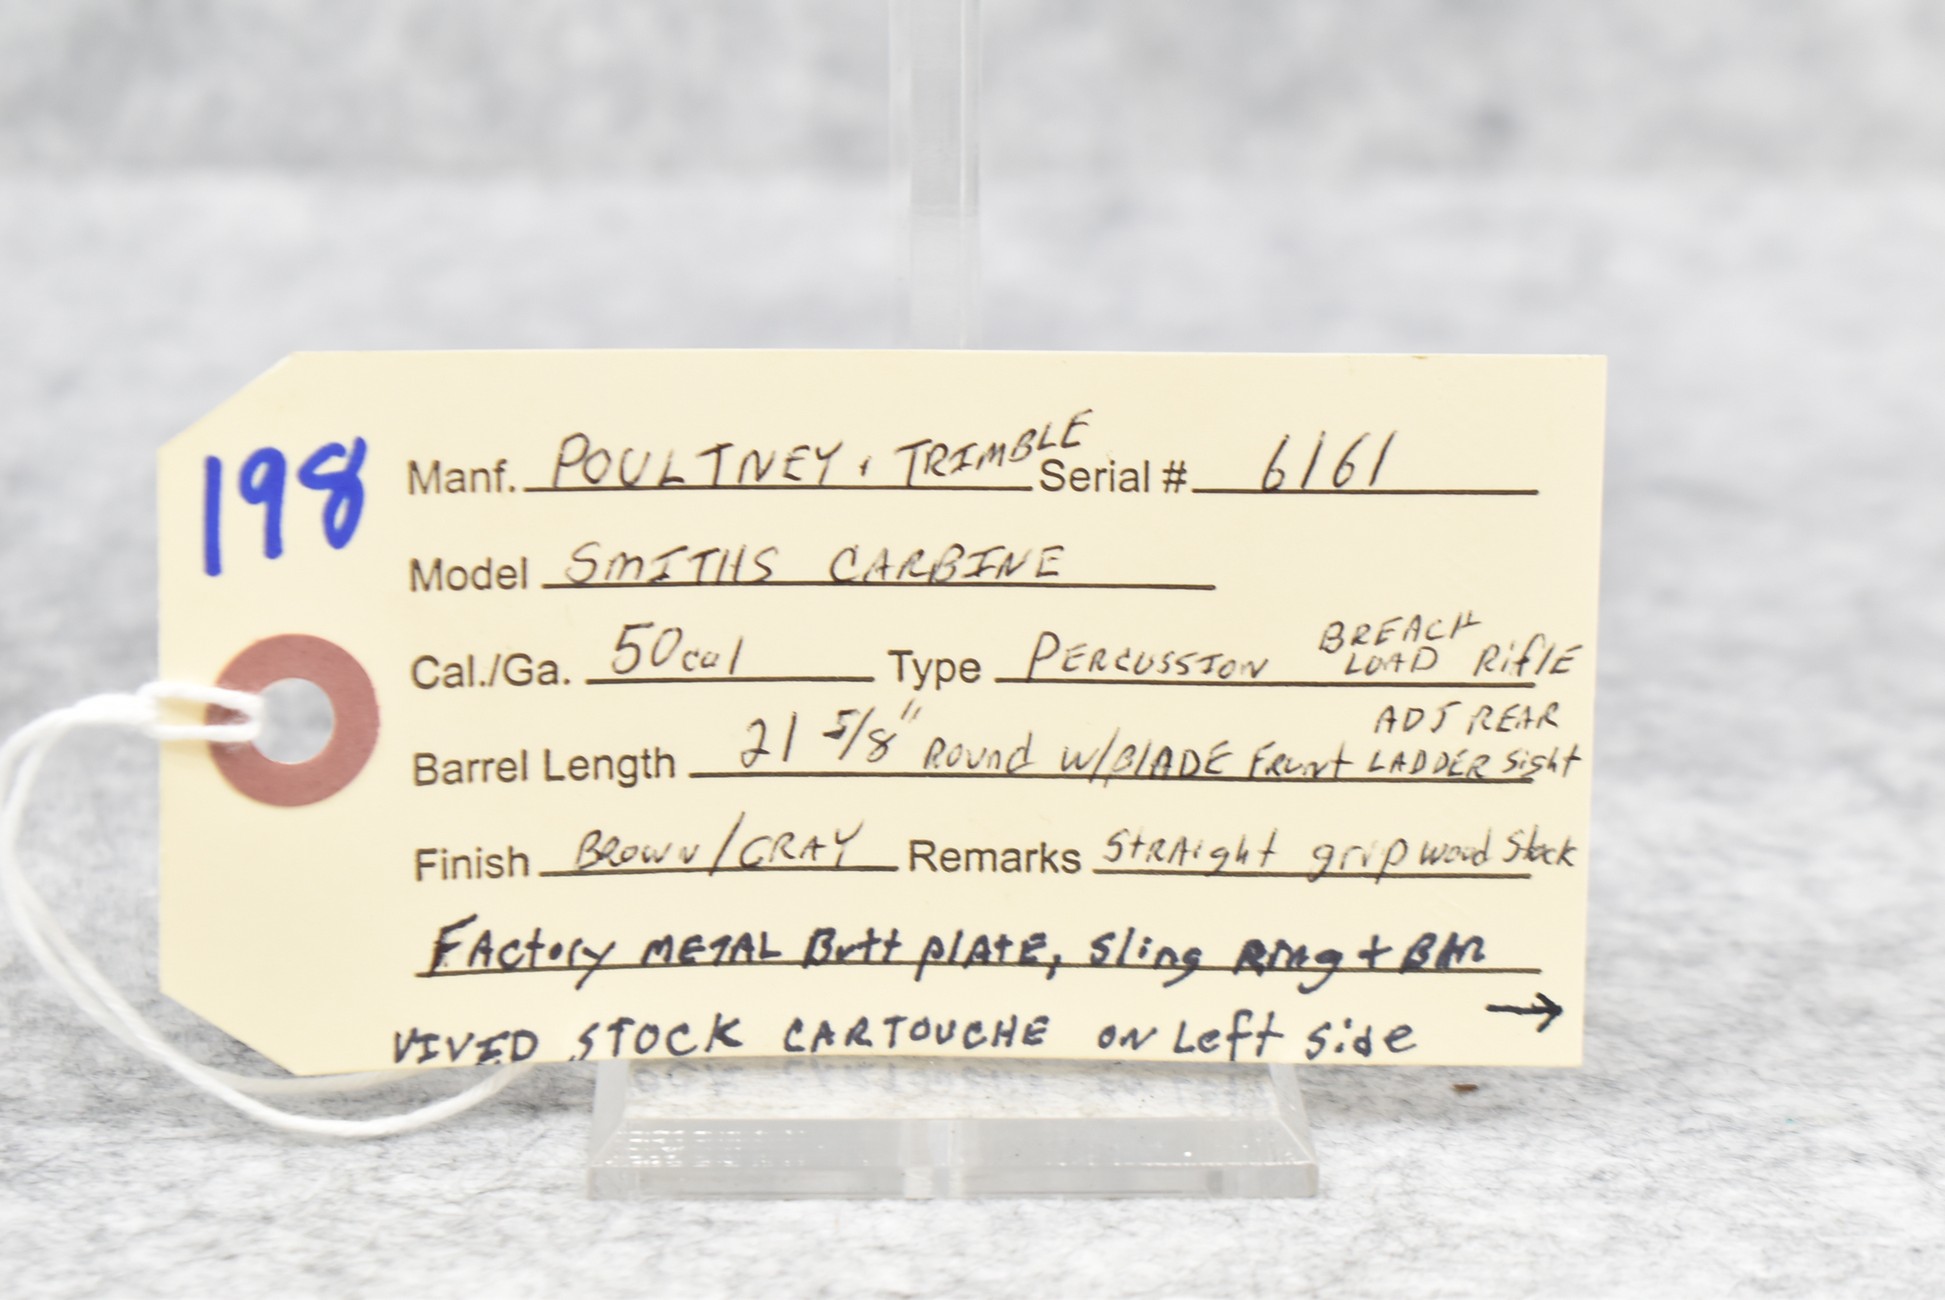 198
Manf. POULTNEY & TRIMBLE Serial # 6161
Model SMITHS CARBINE
Cal./Ga. 50cal Type PERCUSSION BREACH LOAD RiflE
Barrel Length 21 5/8" Round w/BlADE Front ADJ REAR LADDER Sight
Finish BROWN/GRAY Remarks STRAight grip wood Stock
FActory METAL Butt plAtE, Sling Ring + BAR
VIVID STOCK CARTOUCHE ON Left Side →